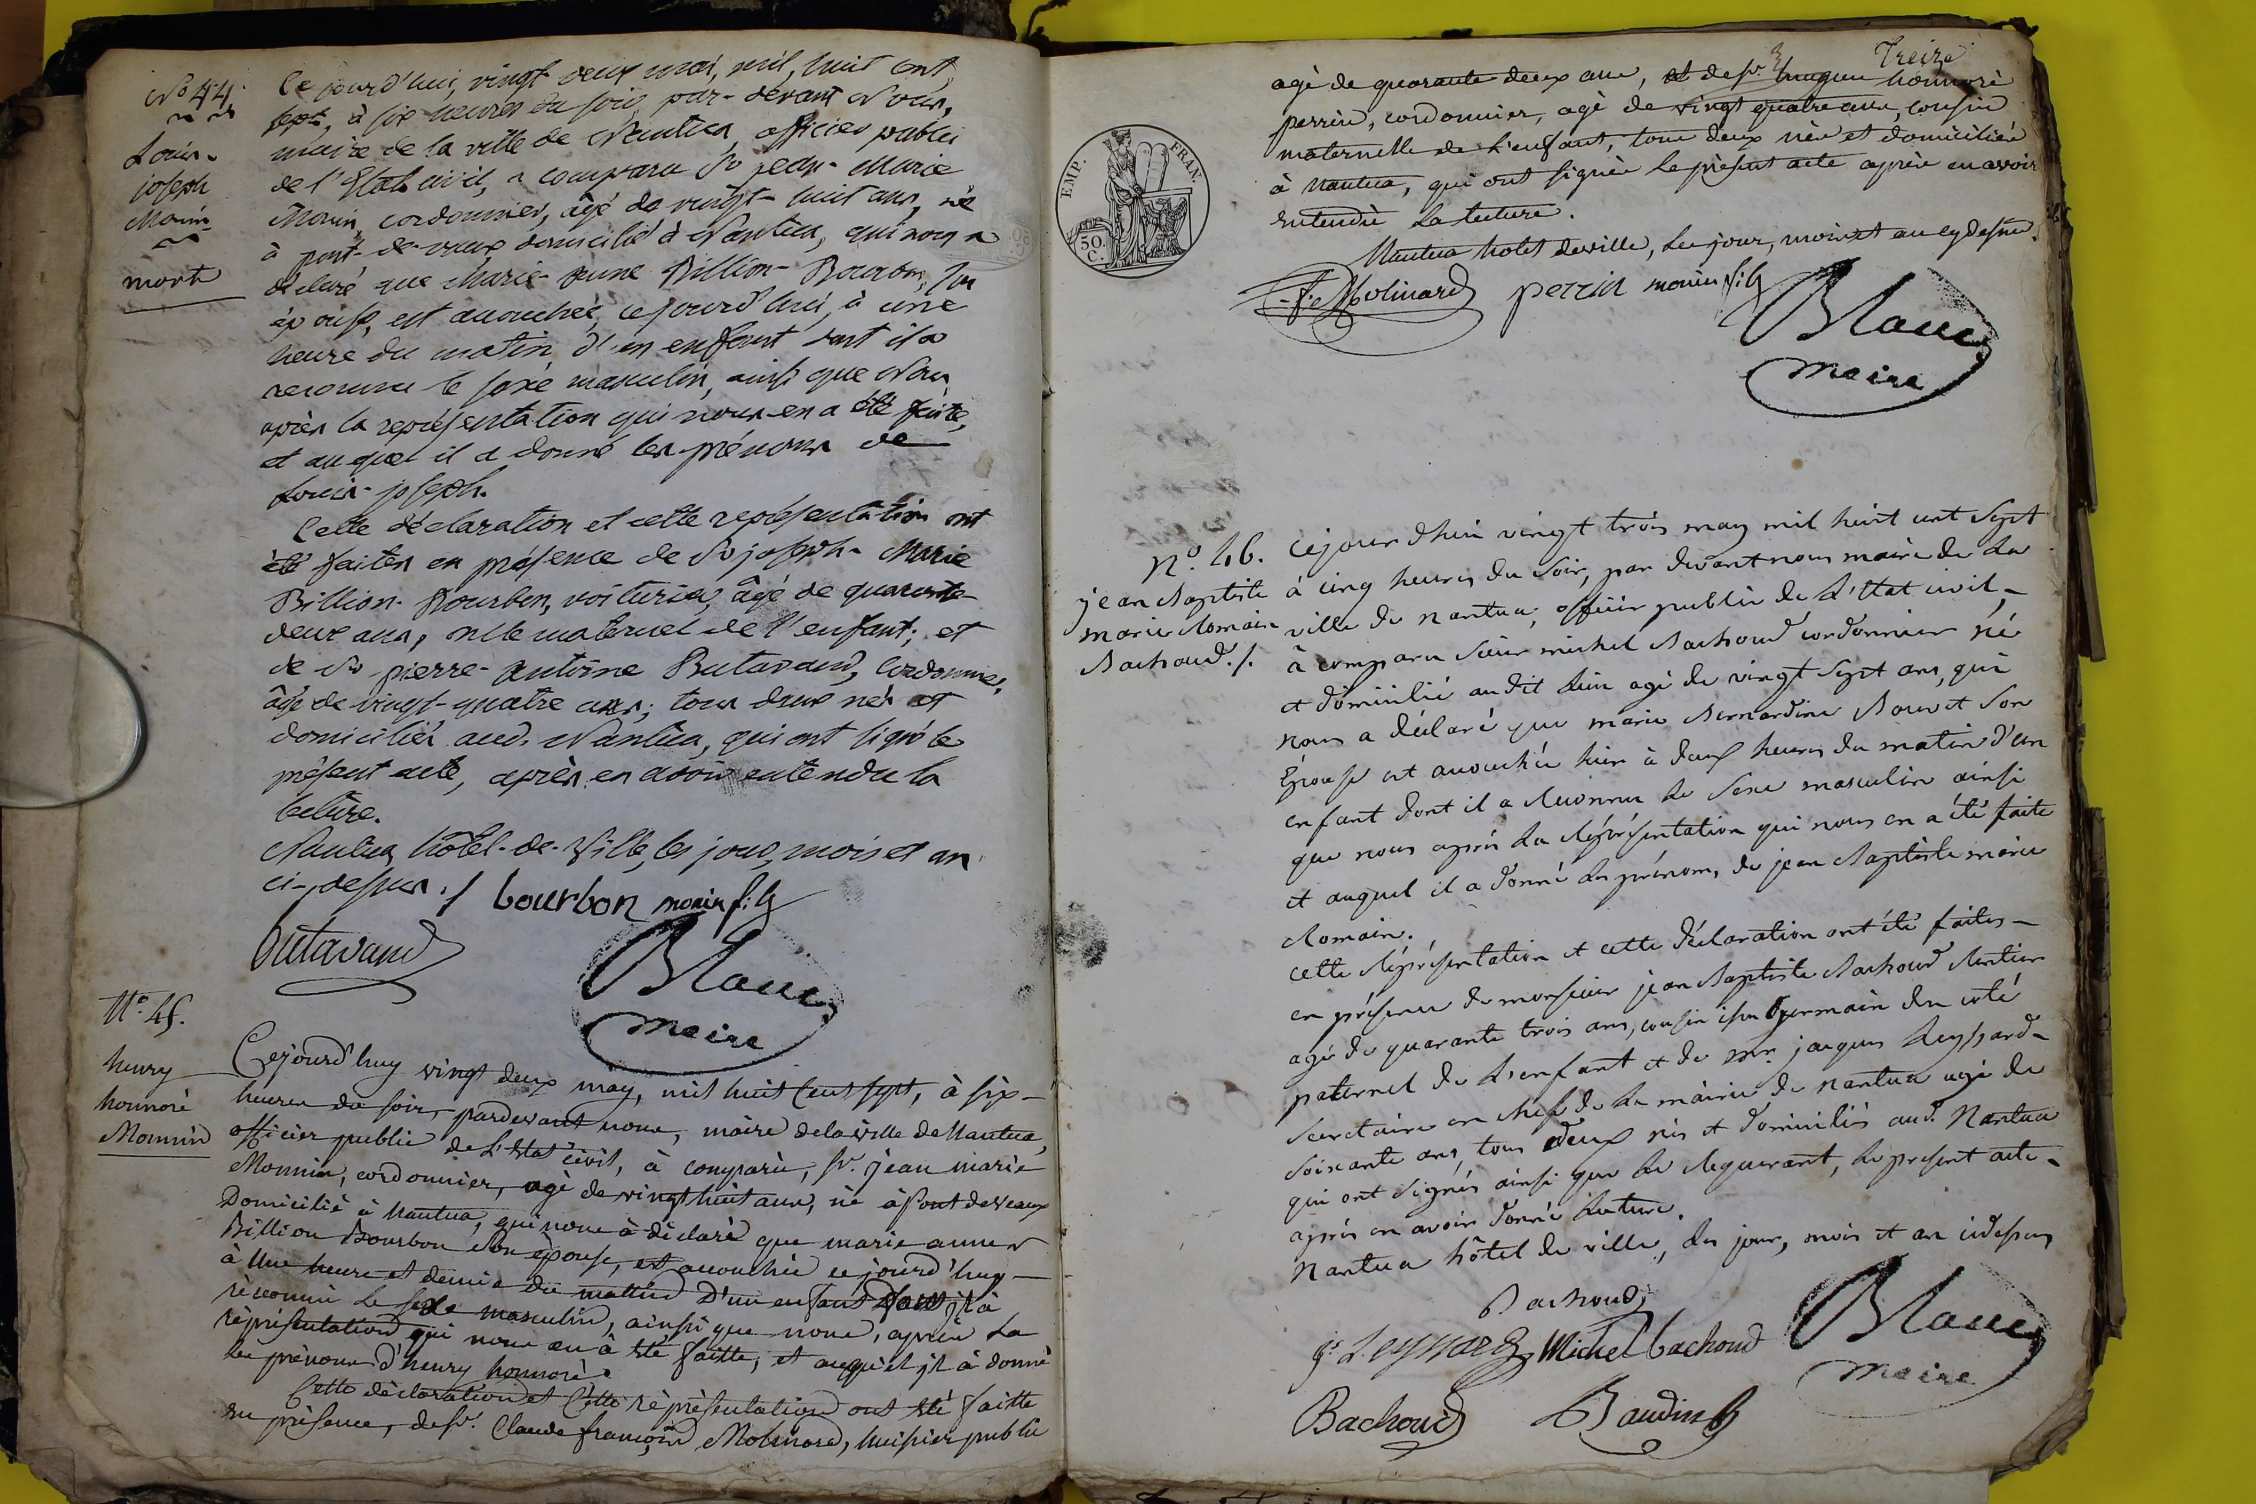 N.o 44.
Louis-
joseph
Monin-
mort
Ce jourd'hui, vingt deux mai, mil, huit cent,
sept, à six heures du soir, par-devant Nous,
maire de la ville de Nantua, officier public
de l'Etat civil, a comparu Sr jean-Marie
Monin, cordonnier, âgé de vingt-huit ans, né
à pont-de-vaux, domicilié à Nantua, qui nous a
déclaré que Marie-anne Billion-Bourbon, son
épouse, est accouchée, ce jourd'hui, à une
heure du matin, d'un enfant dont il a
reconnu le sexe masculin, ainsi que Nous,
après la représentation qui nous en a été faite,
et auquel il a donné les prénoms de
Louis-joseph.
Cette déclaration et cette représentation ont
été faites en présence de Sr joseph-Marie
Billion-Bourbon, voiturier, âgé de quarante-
deux ans, oncle maternel de l'enfant; et
de Sr pierre-antoine Butavand, Cordonnier,
âgé de vingt-quatre ans; tous deux nés et
domiciliés aud. Nantua, qui ont signé le
présent acte, après en avoir entendu la
lecture.
Nantua, hôtel-de-Ville, les jour, mois et an
ci-dessus ./ bourbon monin fils
Butavand
Blanc
Maire
N.o 45.
henry
honnoré
Monnin
Cejourd'huy vingt deux may, mil huit Cent sept, à six-
heures du soir, pardevant nous, maire de la ville de Nantua,
officier public de L'Etat civil, à comparu, sr. jean marie
Monnin, cordonnier, agé de vingt huit ans, né à Pont de veaux
Domicilié à Nantua, qui nous à déclaré que marie anne
Billion Bourbon son épouse, est acouchée ce jourd'huy-
à Une heure et demie du mattin D'un enfant dont jl à
reconnu Le sexe masculin, ainsi que nous, après La
représentation qui nous en à été faitte, et auquel jl à donné
les prénoms d'henry honnoré.
Cette déclaration et Cette représentation ont été faitte
en présence, de sr. Claude françois Molinard, huissier public
Treize
agé de quarante deux ans, et de sr. hugue honnoré
perrin, cordonnier, agé de vingt quatre ans, cousin
maternelle de L'enfant, tous deux nés et domiciliés
à Nantua, qui ont signés Le présent acte après en avoir
entendu La lecture.
Nantua hotel deville, Les jour, mois et an cy dessus.
Molinard perrin monin fils
Blanc
Maire
EMP. FRAN.
50.
C.
N.o 46.
jean Baptiste
marie Romain
Bachoud ./.
Cejourdhui vingt trois may mil huit cent Sept
à cinq heures du Soir, par devant nous maire de La
ville de nantua, officier public de L'Etat civil,-
à comparu Sieur michel Bachoud cordonnier né
et domicilié audit Lieu agé de vingt Sept ans, qui
nous a déclaré que marie Bernardine Son
Epouse est accouchée hier à deux heures du matin d'un
enfant dont il a Reconnu Le Sexe masculin ainsi
que nous après La Représentation qui nous en a été faite
et auquel il a donné Les prénoms, de jean Baptiste marie
Romain.
cette Représentation et cette déclaration ont été faites-
en présence de monsieur jean Baptiste Bachoud Rentier
agé de quarante trois ans, cousin issu Germain du coté
paternel de L'enfant et de Mr. jacques Leyssard-
Secretaire en chef de La mairie de nantua agé de
Soixante ans, tous deux nés et domiciliés aud. Nantua
qui ont Signés ainsi que Le Requerant, Le present acte-
après en avoir donné Lecture.
Nantua hôtel de ville, Les jour, mois et an cidessus
Bachoud
Leyssard Michel bachoud
Blanc
Maire
Bachoud Baudin